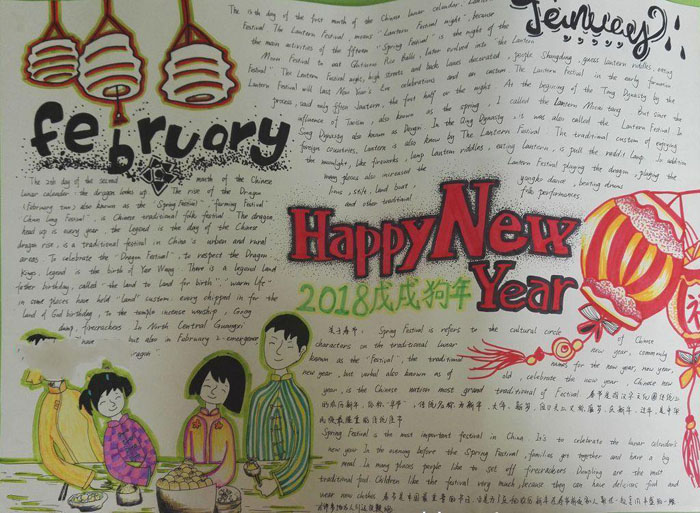 Jeinuey
The 15th day of the first month of the Chinese lunar calendar, Lantern
Festival. The Lantern Festival, means "Lantern Festival night", because
the main activities of the fifteen "Spring Festival" is the night of the
Festival". The Lantern Festival night, high streets and back lanes decorated,
Lantern Festival will last New Year's Eve celebrations and an custom. The Lantern Festival in the early formation
process, said only fifteen lantern, the first half or the night. At the beginning of the Tang Dynasty by the
influence of Taoism also known as the spring, I called the Lantern
Song Dynasty also known as Dengxi. In the Qing Dynasty, it was also called the Lantern Festival. In
foreign countries, Lantern is also know by The Lantern Festival. The traditional custom of enjoying
the moonlight, like fireworks, lamp lantern riddles, eating lantern, is pull the rabbit lamp. In addition
many places also increased the Lantern Festival playing the dragon, playing the
lions, stilt, land boat, yangko dance, beating drums
and other traditional folk performances.
february
The 2th day of the second month of the Chinese
lunar calendar the dragon looks up The rise of the Dragon
(February two) also known as the "Spring Festival" farming Festival
", is Chinese traditional folk festival. The dragon
head up is every year the legend is the day of the Chinese
dragon rise, is a traditional festival in China's urban and rural
areas. To celebrate the "Dragon Festival" to respect the Dragon
Kings. Legend is the birth of Yao Wang. There is a legend Land
father birthday, called "the land to land for birth" "warm life"
in some places have held "land" custom every chipped in for the
land of God birthday, to the temple incense worship, Gong
firecrackers In North Central Guangxi
have but also in February 2
Happy New
Year
2018戊戌狗年
关于春节, Spring Festival is refers to the cultural circle of Chinese
characters on the traditional lunar new year, commonly
known as the "Festival", the traditional names for the new year, new year,
new year, but verbal also known as old, celebrate the new year Chinese new
year, is the Chinese nation most grand traditional of Festival 春节是指汉字文化圈传统上
的农历新年, 俗称"年节",传统名称为新年、大年、新岁,但口头上又称度岁、庆新岁、过年,是中华
民族最隆重的传统佳节
Spring Festival is the most important festival in China. It's to celebrate the lunar calendar's
new year In the evening before the Spring Festival, families get together and have a big
meal. In many places people like to set off firecrackers Dumpling are the most
traditional food Children like the festival very much, because they can have delicious food and
wear new clothes